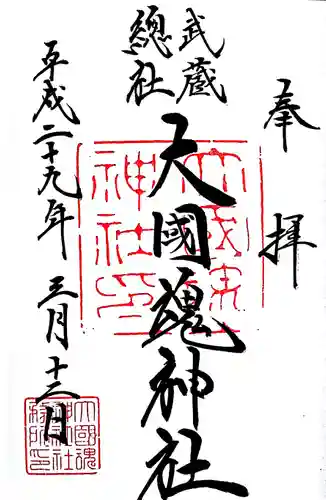 奉拝
武蔵
總社
大國魂神社
平成二十九年三月十二日
大國魂
神社社
務所印